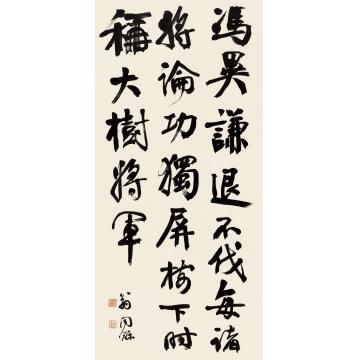 馮異謙退不伐每諸
將論功獨屏樹下時
稱大樹將軍
翁同龢